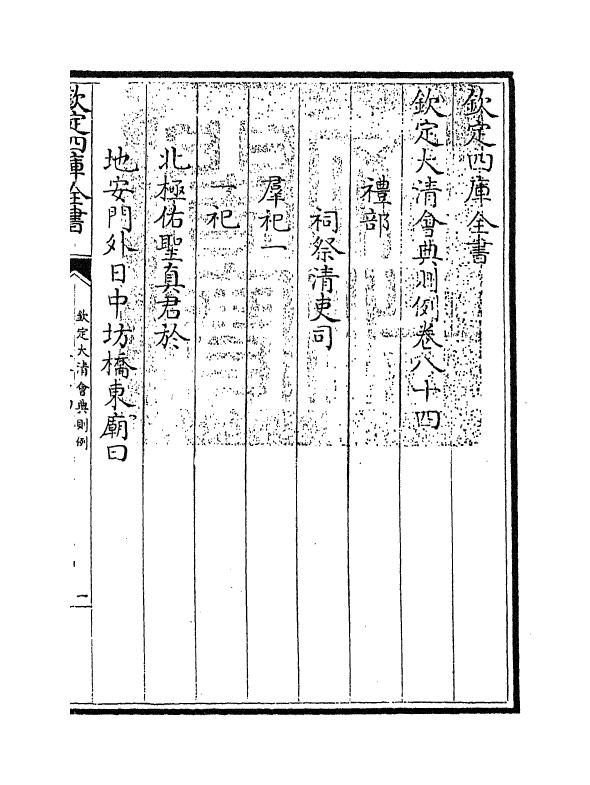 欽定四庫全書
欽定大清會典則例卷八十四
禮部
祠祭清吏司
羣祀一
一祀
北極佑聖真君於
地安門外日中坊橋東廟曰
欽定四庫全書
欽定大清會典則例
一